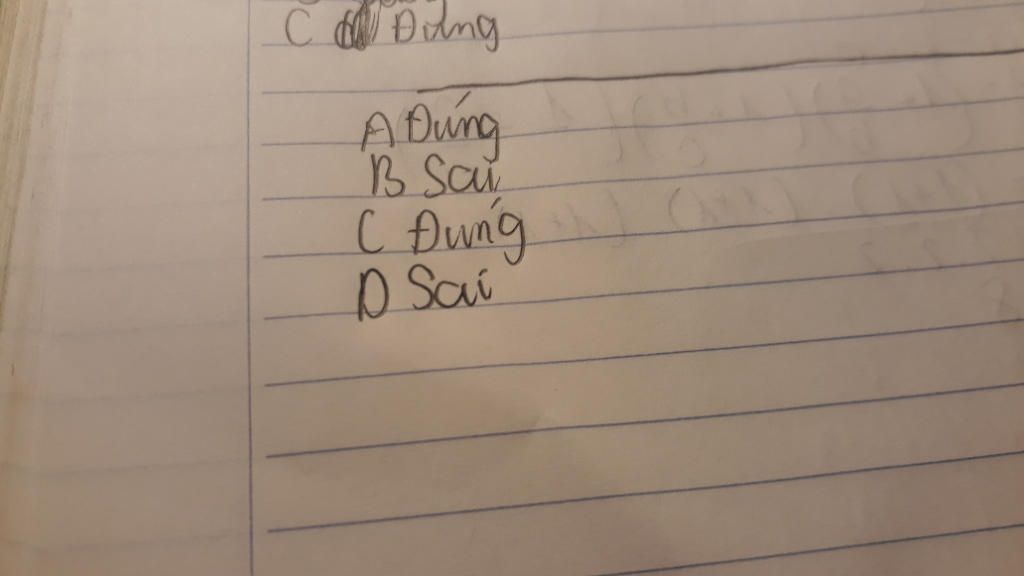 C Đúng
A Đúng
B Sai
C Đúng
D Sai